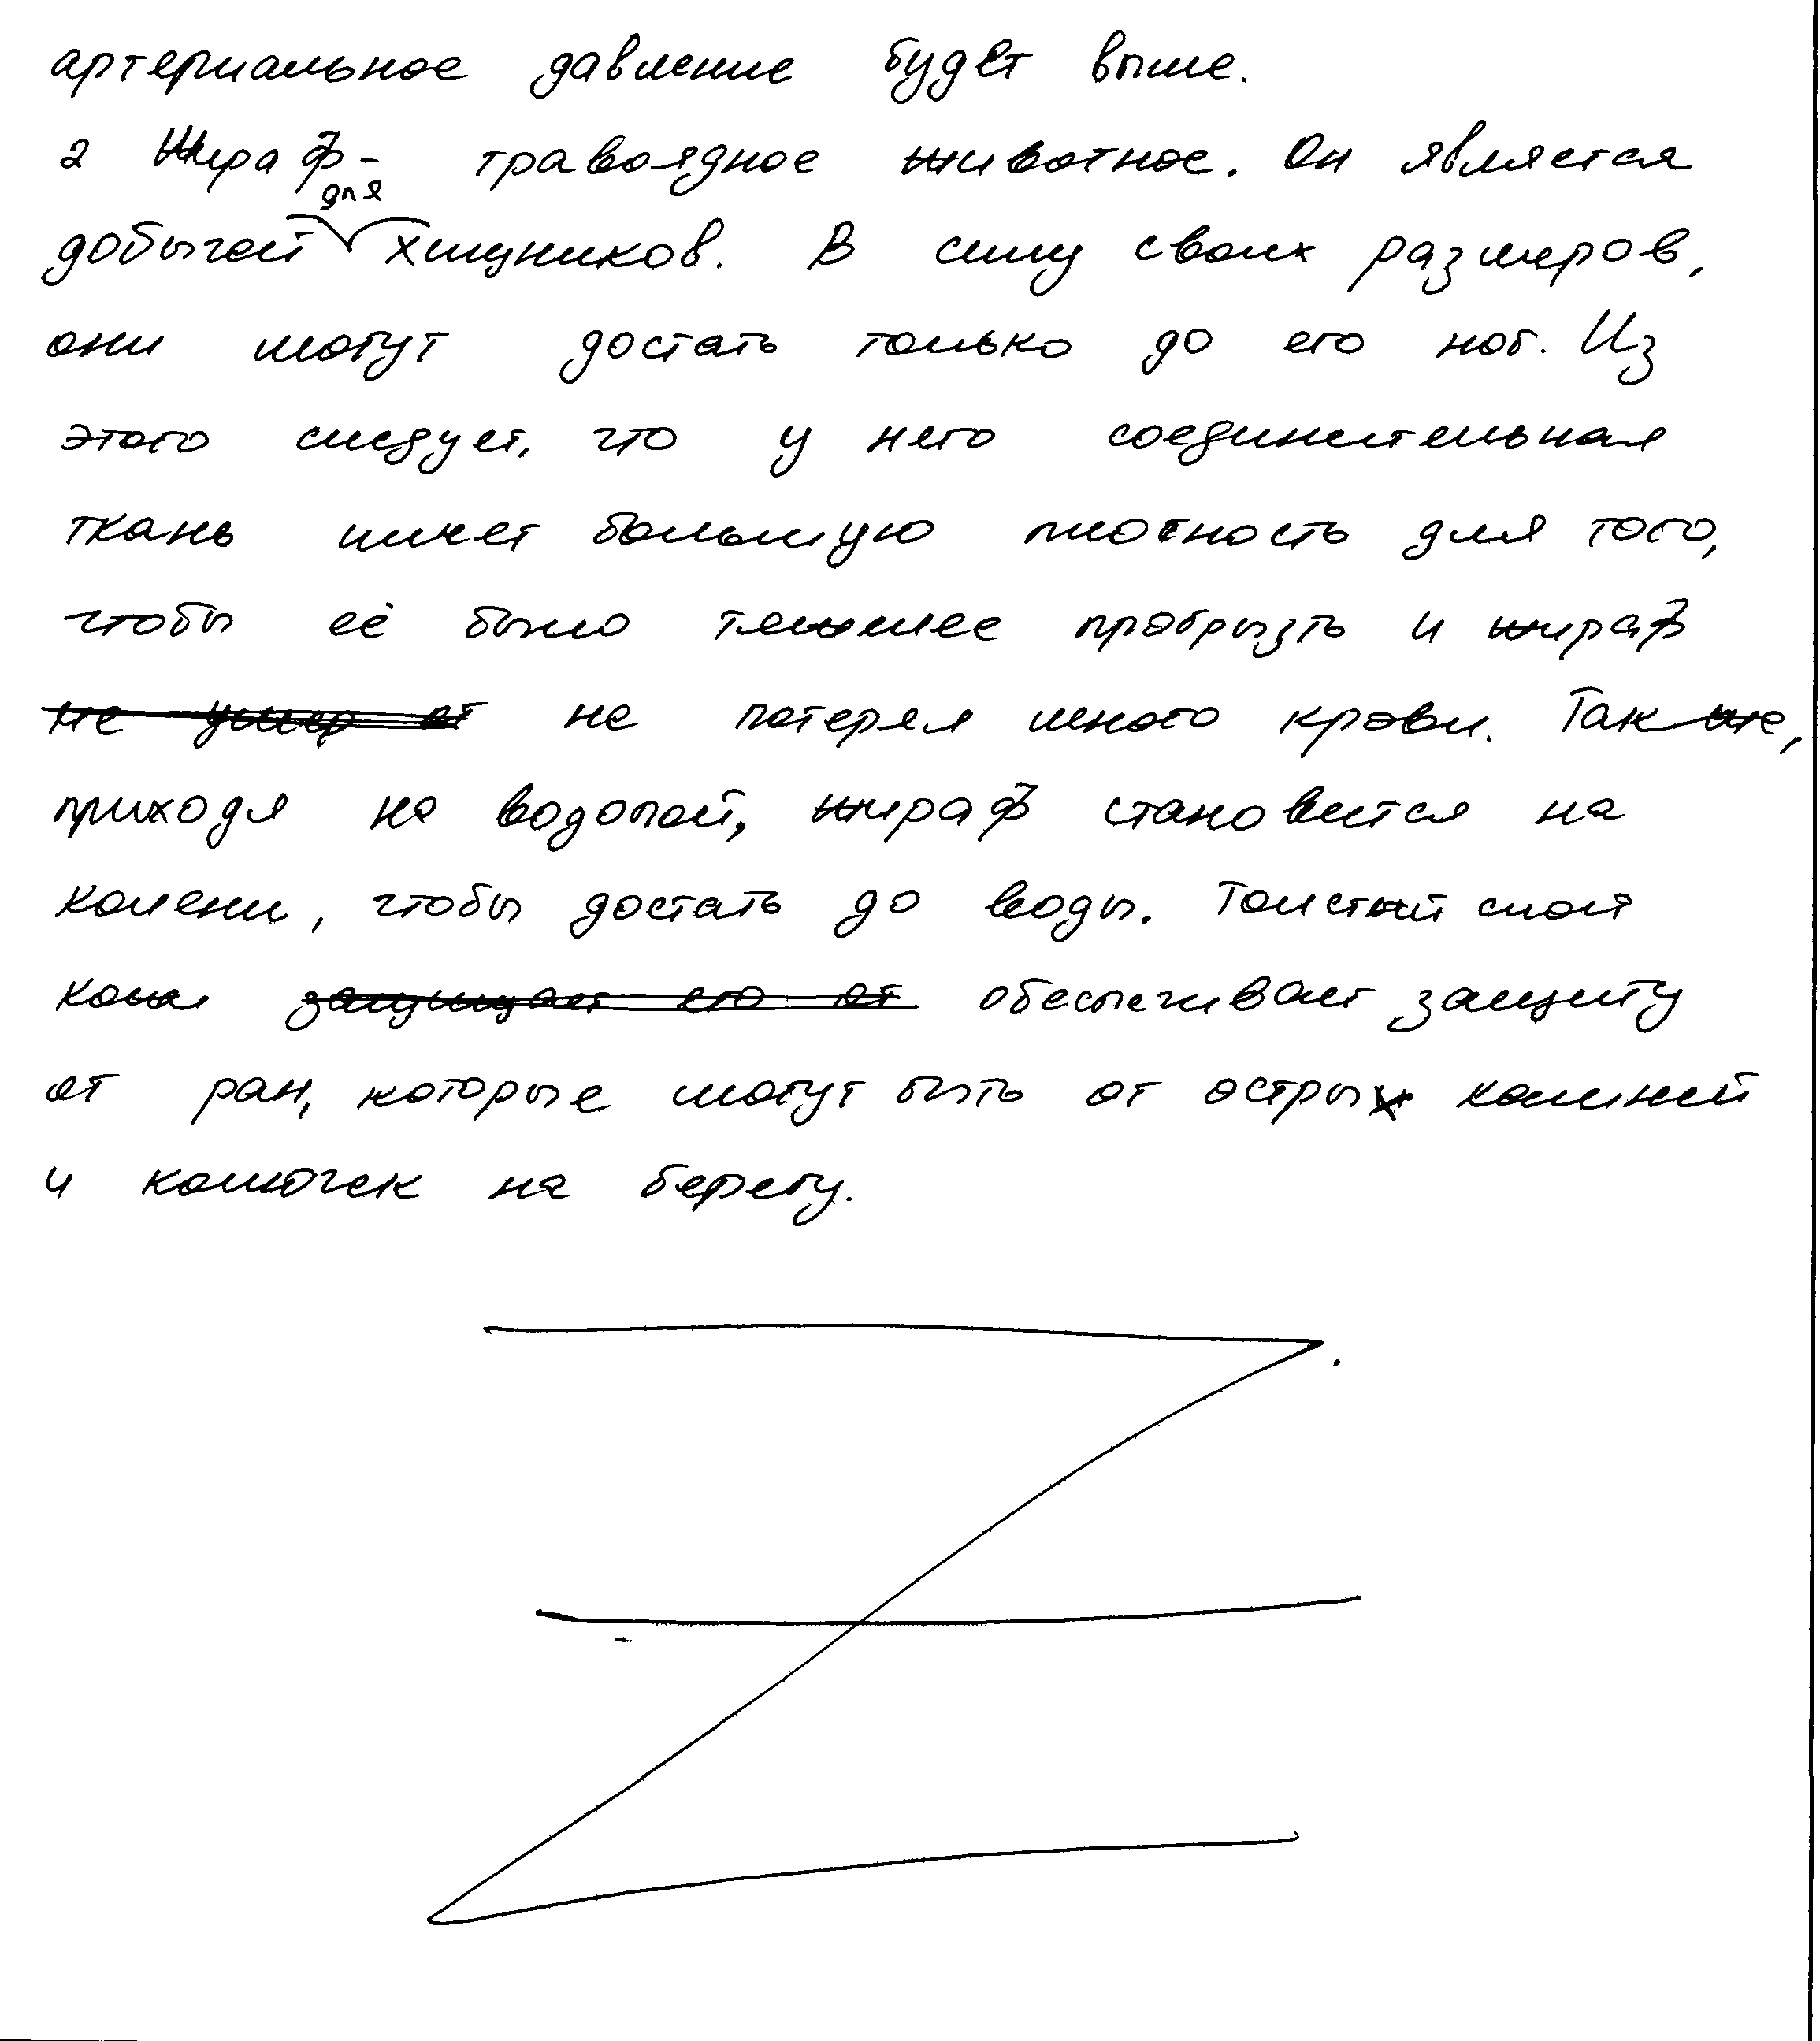 артериальное давление будет выше.
2 Жираф - травоядное животное. Он является
добычей для хищников. В силу своих размеров,
они могут достать только до его ног. Из
этого следует, что у него соединительная
ткань имеет большую плотность для того,
чтобы её было тяжелее прогрызть и жираф
~~не умер от~~ не потерял много крови. Так же,
приходя на водопой, жираф становится на
колени, чтобы достать до воды. Толстый слой
кожи ~~защищает его от~~ обеспечивает защиту
от ран, которые могут быть от острых камней
и колючек на берегу.